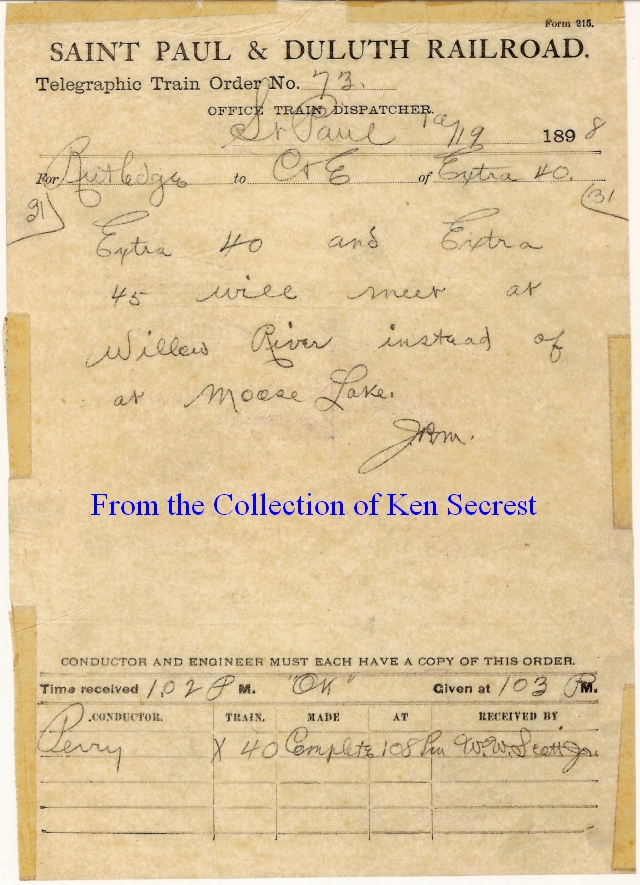 Form 215.
SAINT PAUL & DULUTH RAILROAD.
Telegraphic Train Order No. 73.
OFFICE TRAIN DISPATCHER.
St Paul 10/19 1898
For Rutledge to C&E of Extra 40.
31 31
Extra 40 and Extra
45 will meet at
Willow River instead of
at Moose Lake.
From the Collection of Ken Secrest
CONDUCTOR AND ENGINEER MUST EACH HAVE A COPY OF THIS ORDER.
Time received 1.02 P M. "OK" Given at 103 P M.
CONDUCTOR. TRAIN. MADE AT RECEIVED BY
Perry X 40 Complete 108 Pm W.W. Scott